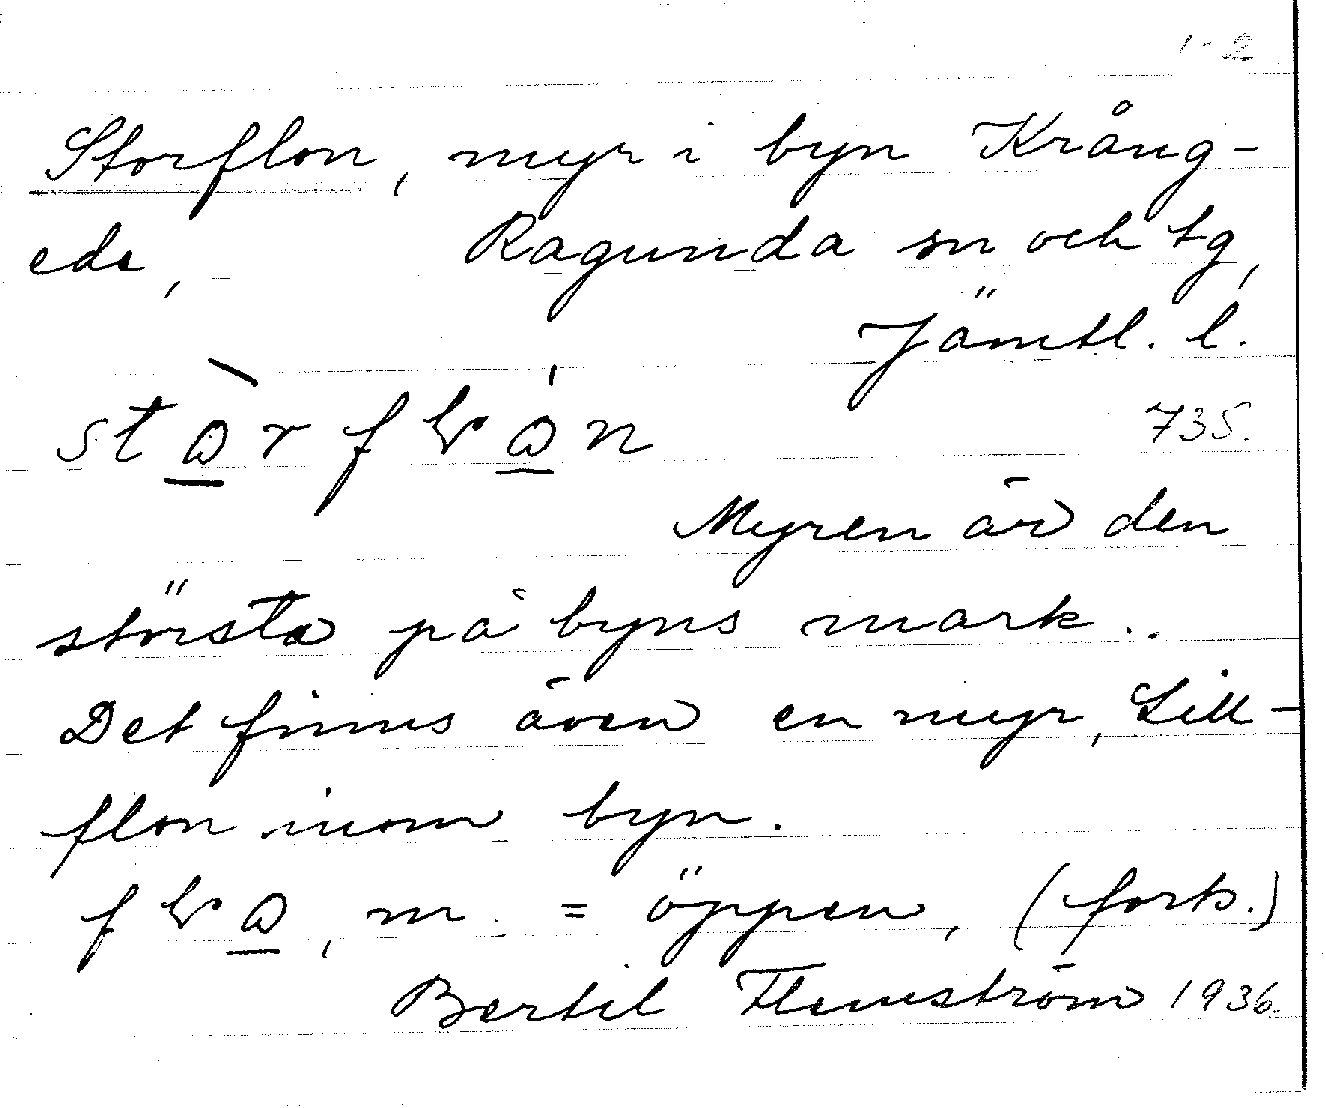 1-2
Storflon, myr i byn Krång-
ede, Ragunda sn och tg,
Jämtl. l.
735.
Myren är den
största på byns mark..
Det finns även en myr, Lill-
flon inom byn.
m. = öppen, (forts.)
Bertil Flemström 1936.